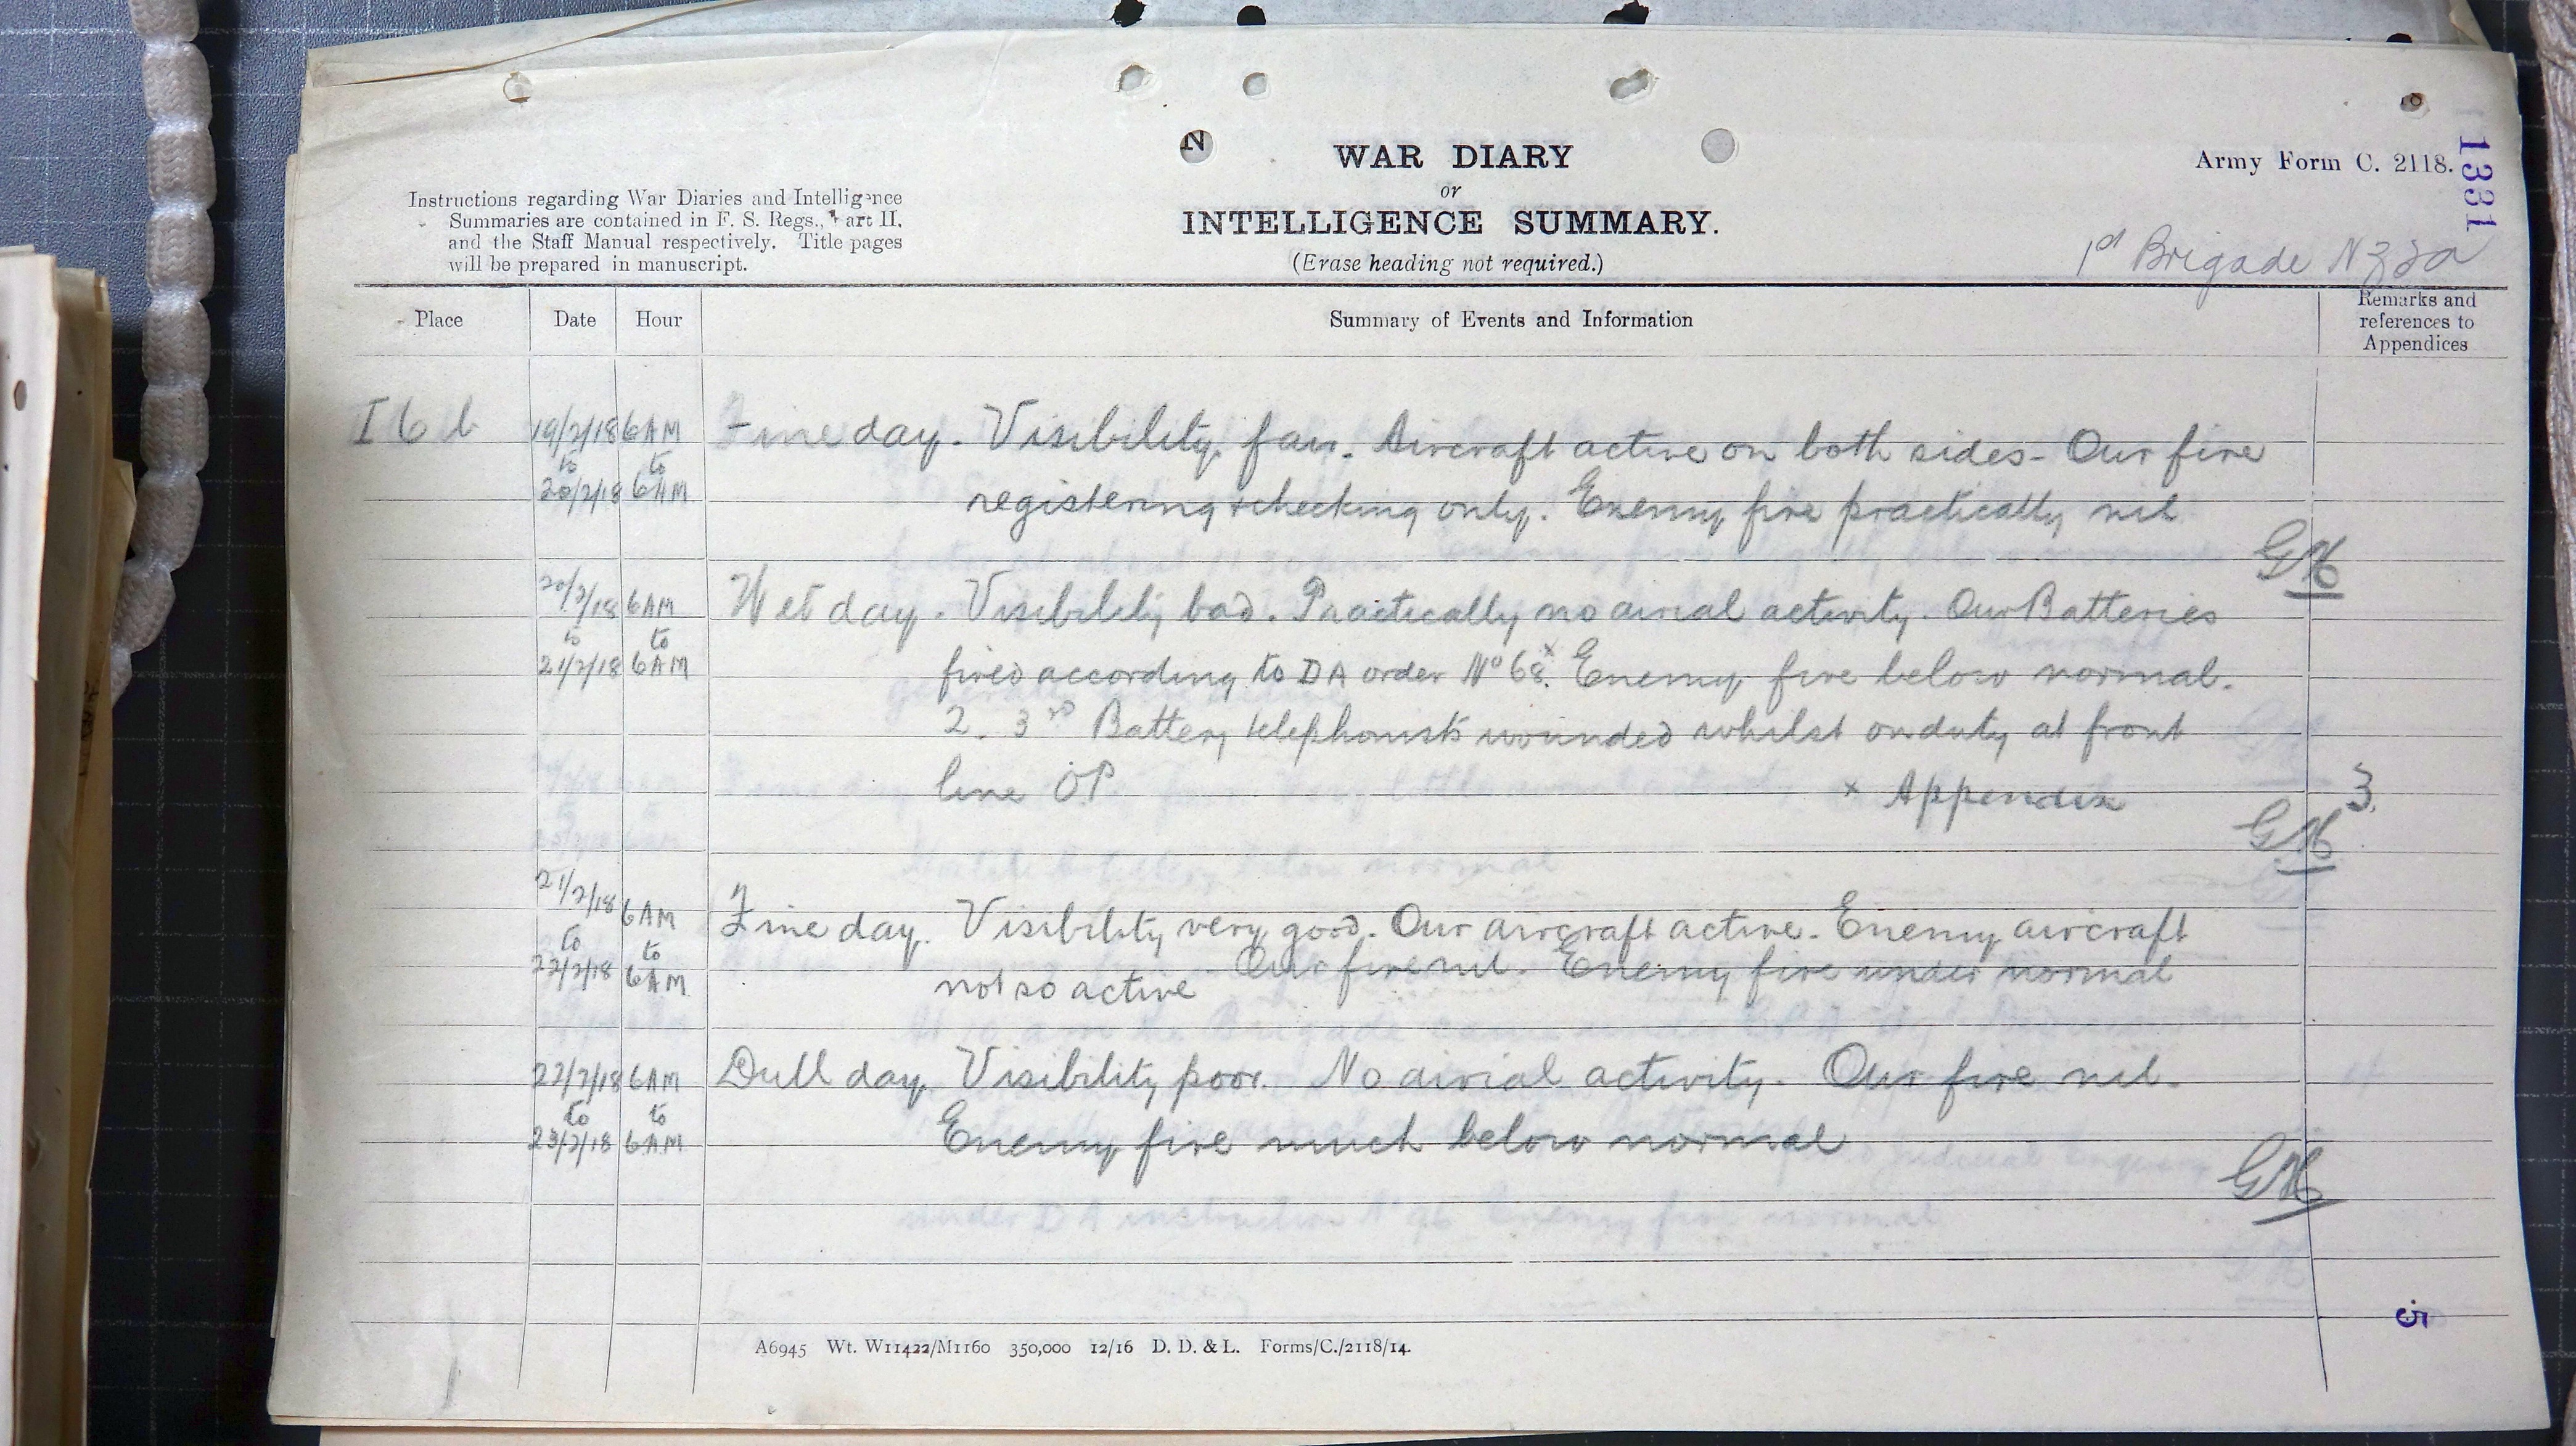 WAR DIARY
or
INTELLIGENCE SUMMARY.
(Erase heading not required.)
Army Form C. 2118.
1331
Instructions regarding War Diaries and Intelligence
Summaries are contained in F. S. Regs., Part II,
and the Staff Manual respectively. Title pages
will be prepared in manuscript.
1st Brigade NZFA
Place Date Hour Summary of Events and Information Remarks and
references to
Appendices
I 6 b 19/2/18 6AM Fine day. Visibility fair. Aircraft active on both sides- Our fire
to to
20/2/18 6AM registering & checking only. Enemy fire practically nil
GH
20/2/18 6AM Wet day. Visibility bad. Practically no airial activity. Our Batteries
to to
21/2/18 6AM fired according to DA order No 68.x Enemy fire below normal.
2. 3rd Battery telephonists wounded whilst on duty at front
line OP x Appendix 3.
GH
21/2/18 6AM Fine day. Visibility very good. Our aircraft active. Enemy aircraft
to to
22/2/18 6AM not so active Our fire nil. Enemy fire under normal
22/2/18 6AM Dull day. Visibility poor. No airial activity. Our fire nil.
to to
23/2/18 6AM Enemy fire much below normal
GH
5
A6945 Wt. W11422/M1160 350,000 12/16 D. D. & L. Forms/C./2118/14.